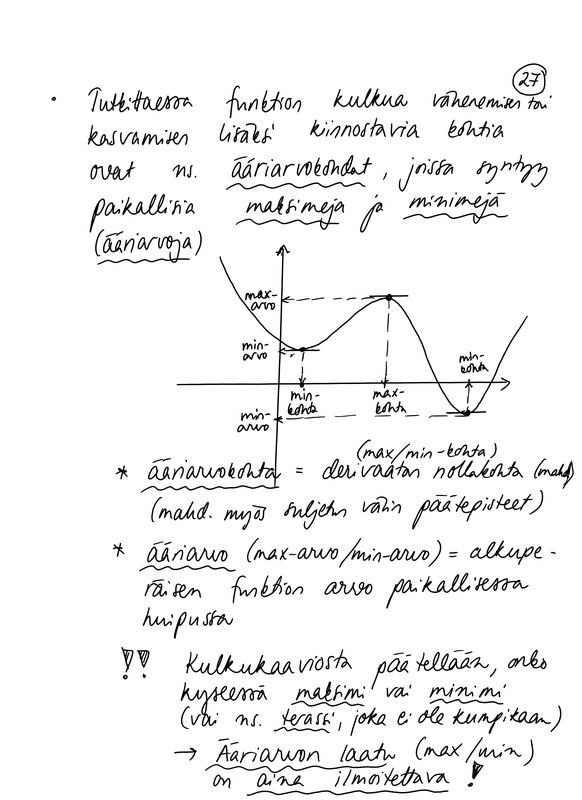 27
• Tutkittaessa funktion kulkua vähenemisen tai
kasvamisen lisäksi kiinnostavia kohtia
ovat ns. ääriarvokohdat, joissa syntyy
paikallisia maksimeja ja minimejä
(ääriarvoja)
max-
arvo
min-
arvo
min-
kohta
min-
kohta
max-
kohta
min-
arvo
(max/min-kohta)
* ääriarvokohta = derivaatan nollakohta (mahd)
(mahd. myös suljetun välin päätepisteet)
* ääriarvo (max-arvo/min-arvo) = alkupe-
räisen funktion arvo paikallisessa
huipussa
!! Kulkukaaviosta päätellään, onko
kyseessä maksimi vai minimi
(vai ns. terassi, joka ei ole kumpikaan)
→ Ääriarvon laatu (max/min)
on aina ilmoitettava !